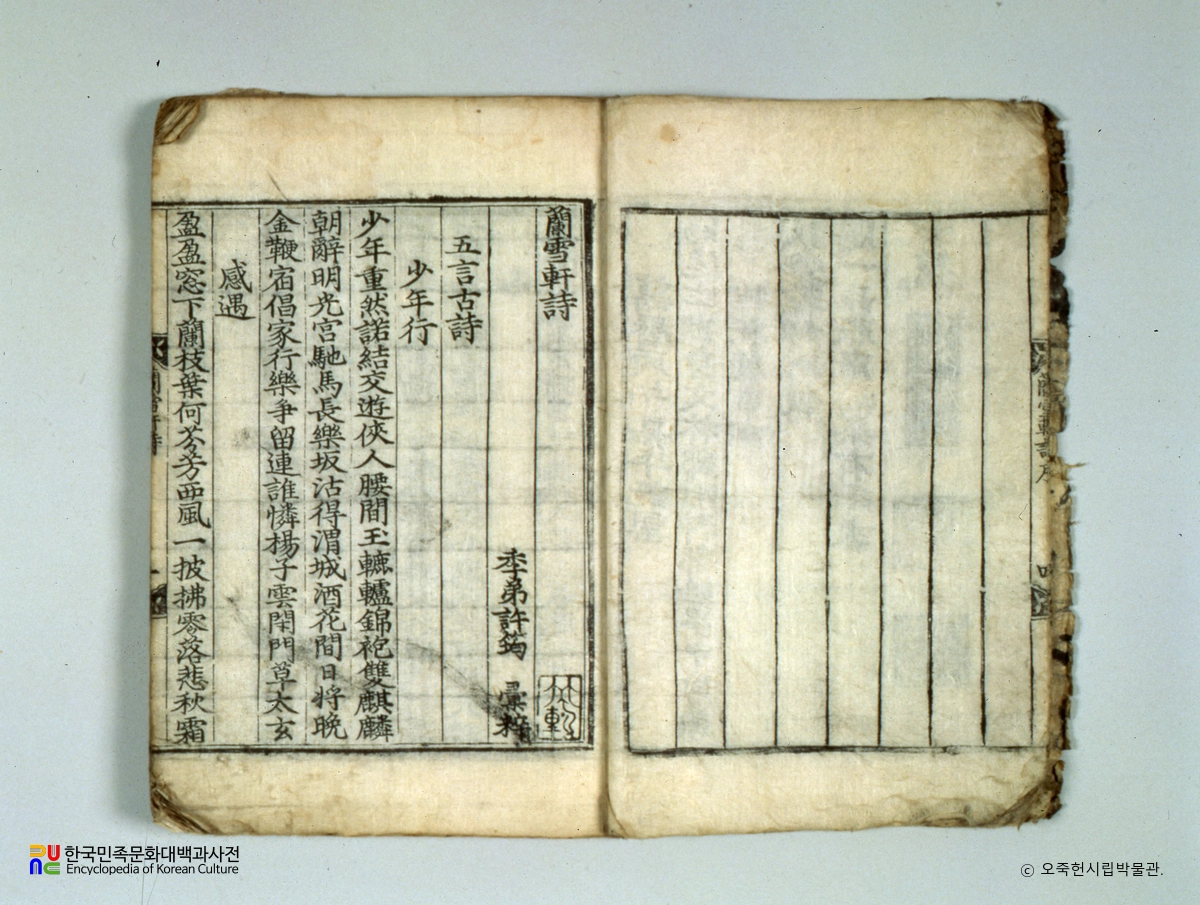 蘭雪軒詩
季弟許筠 彙粹
五言古詩
少年行
少年重然諾結交遊俠人腰間玉轆轤錦袍雙麒麟
朝辭明光宮馳馬長樂坂沽得渭城酒花間日將晩
金鞭宿倡家行樂爭留連誰憐楊子雲閑門草太玄
感遇
盈盈窓下蘭枝葉何芬芳西風一披拂零落悲秋霜
蘭雪軒詩
한국민족문화대백과사전
Encyclopedia of Korean Culture
ⓒ 오죽헌시립박물관.